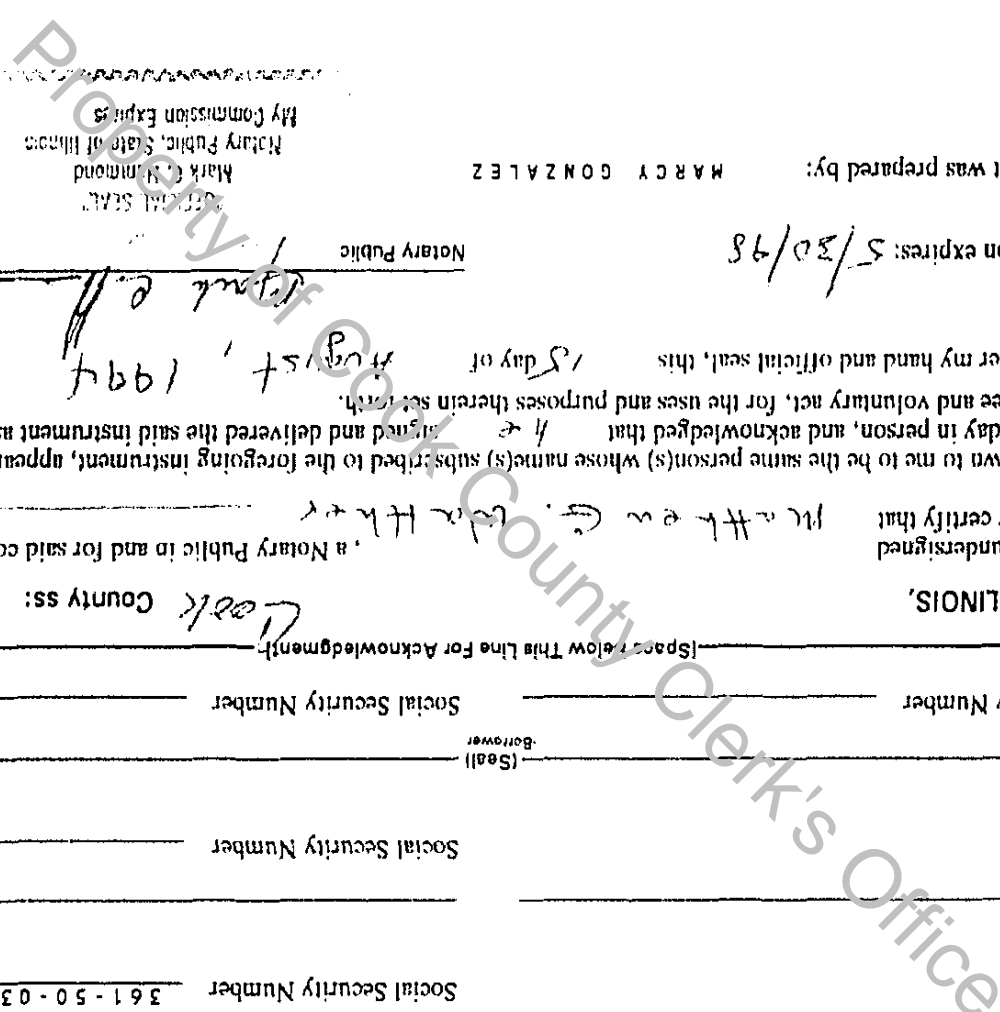 Social Security Number 361-50-03
Social Security Number
(Seal)
-Borrower
Number Social Security Number
[Space Below This Line For Acknowledgment]
LINOIS, Cook County ss:
undersigned , a Notary Public in and for said co
certify that Matthew G. Walther
wn to me to be the same person(s) whose name(s) subscribed to the foregoing instrument, appear
day in person, and acknowledged that he signed and delivered the said instrument as
ee and voluntary act, for the uses and purposes therein set forth.
er my hand and official seal, this 15 day of August, 1994
Mark C.
on expires: 5/30/98 Notary Public
"OFFICIAL SEAL"
t was prepared by: MARCY GONZALEZ
Mark C. Hammond
Notary Public, State of Illinois
My Commission Expires
Property of Cook County Clerk's Office